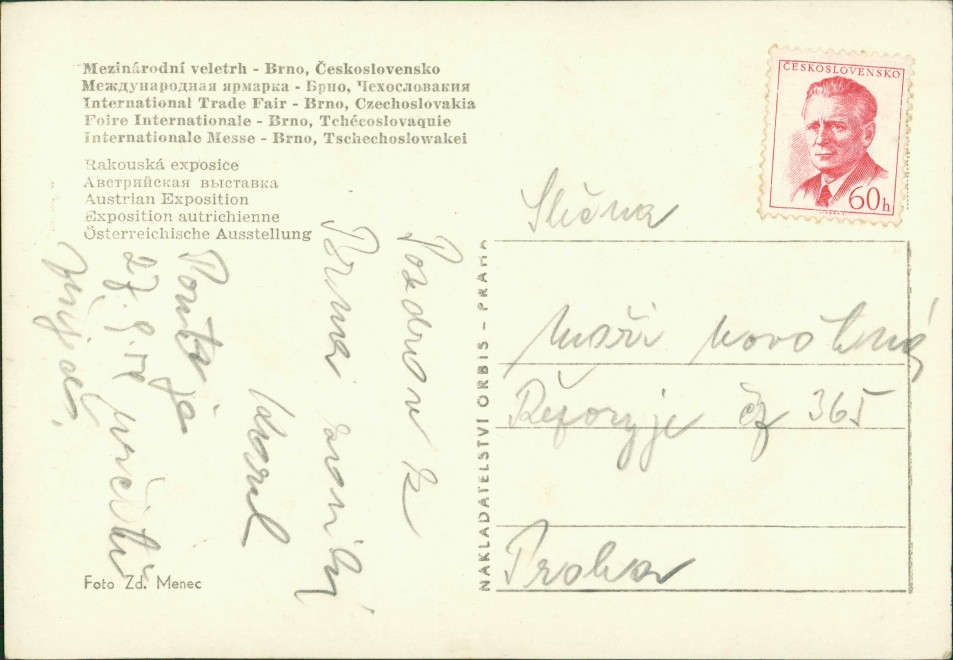 Mezinárodní veletrh - Brno, Československo
Международная ярмарка - Брно, Чехословакия
International Trade Fair - Brno, Czechoslovakia
Foire Internationale - Brno, Tchécoslovaquie
Internationale Messe - Brno, Tschechoslowakei
Rakouská exposice
Австрийская выставка
Austrian Exposition
Exposition autrichienne
Österreichische Ausstellung
Pozdrav z
Brna
Karel
27. 9.
Foto Zd. Menec
NAKLADATELSTVÍ ORBIS – PRAHA
ČESKOSLOVENSKO
60h
Slečna
Novotná
365
Praha